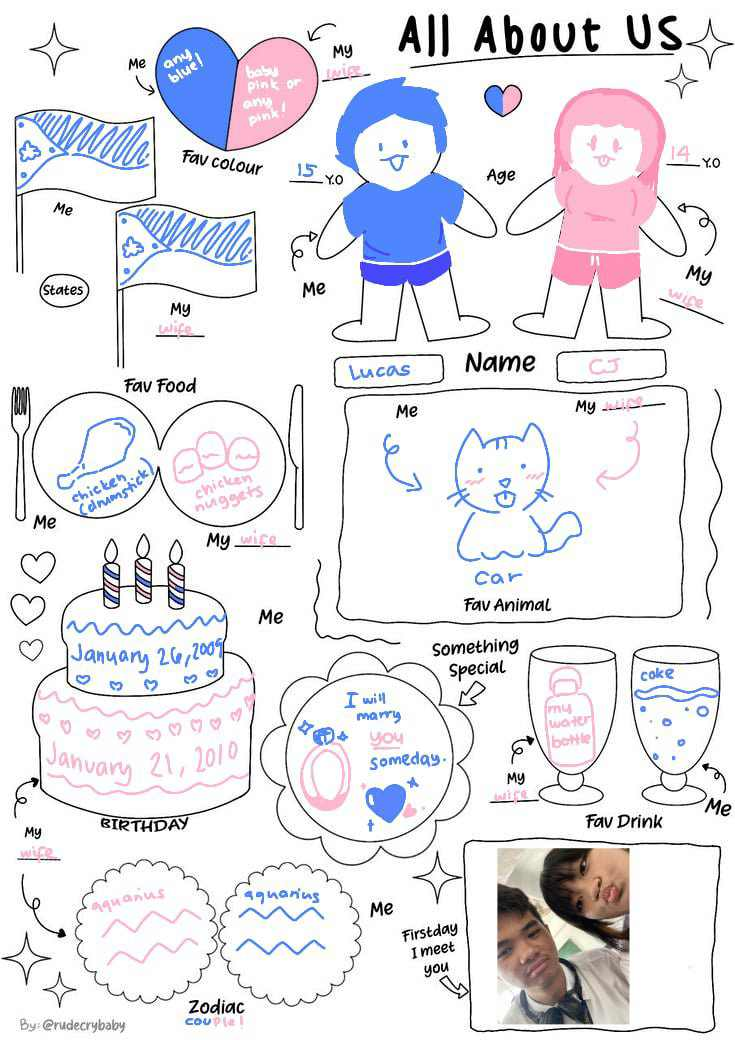 All About US
Me
any
blue!
baby
pink or
any
pink!
My
wife
Fav colour
15 Y.O
Age
14 Y.O
Me
My
wife
Me
States
My
wife
Lucas
Name
CJ
Fav Food
chicken
(drumstick)
chicken
nuggets
Me
My wife
Me
My wife
car
Fav Animal
Me
January 26, 2009
January 21, 2010
BIRTHDAY
My
wife
Something
Special
I will
marry
you
someday.
my
water
bottle
coke
My
wife
Me
Fav Drink
aquarius
aquarius
Me
Zodiac
couple!
Firstday
I meet
you
By: @rudecrybaby